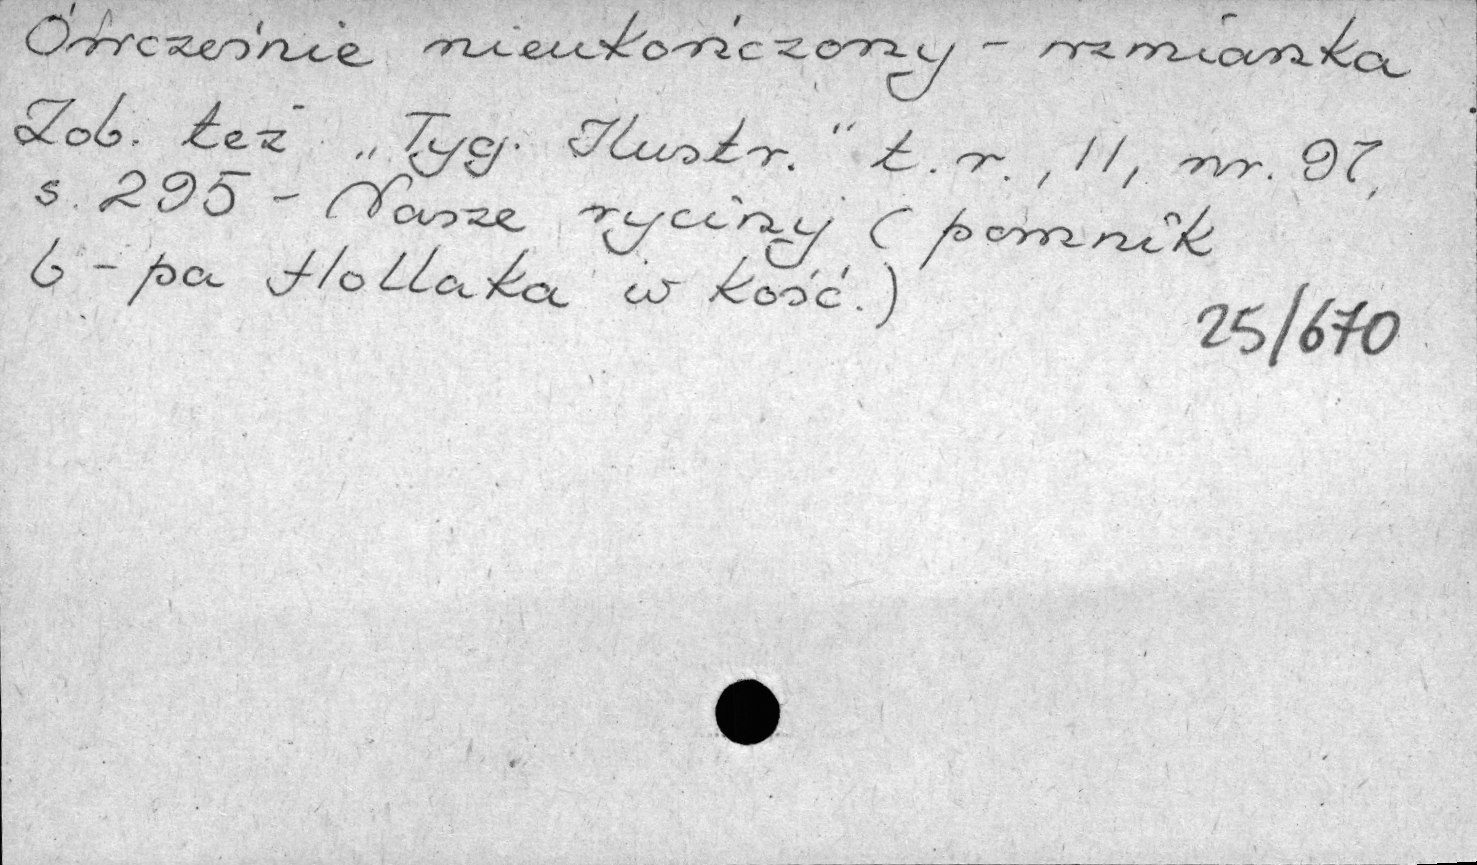 Ówcześnie nieukończony - wzmianka
Zob. też „Tyg. Ilustr." t. r., 11, nr. 97,
s. 295 - Nasze ryciny (pomnik
b-pa Hollaka w kość.)
25/670